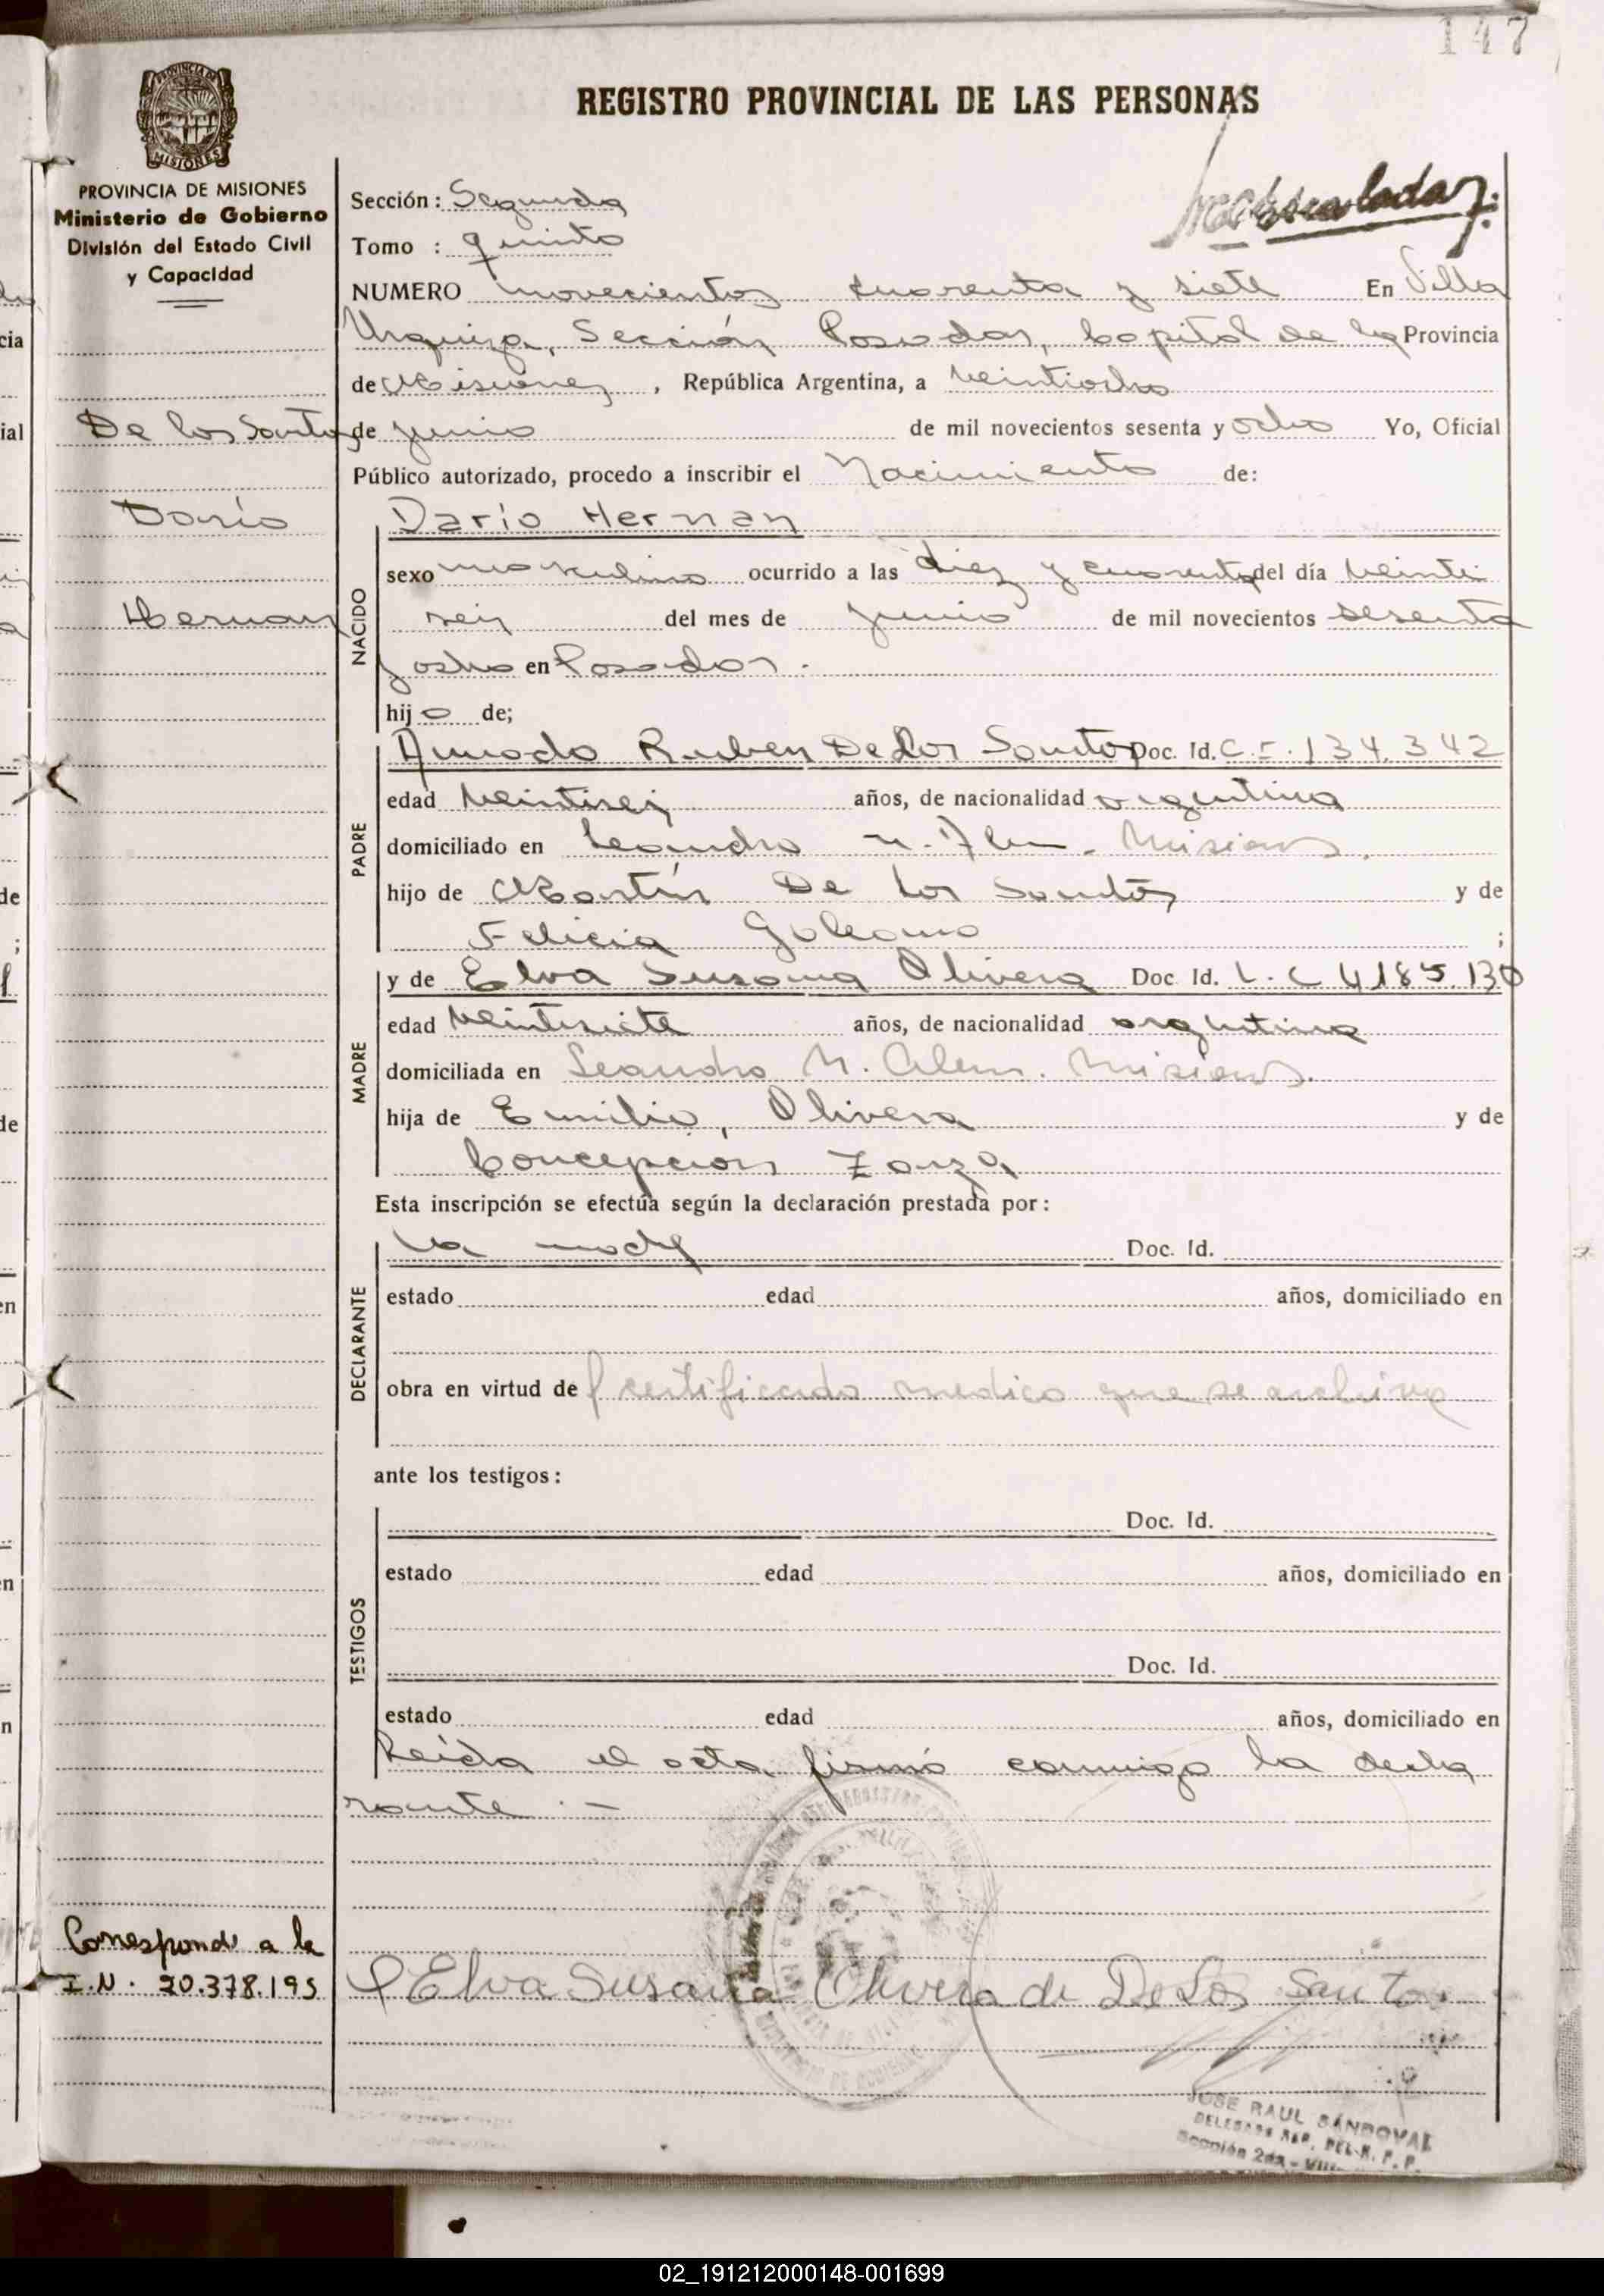 147
REGISTRO PROVINCIAL DE LAS PERSONAS
PROVINCIA DE MISIONES
MISIONES
PROVINCIA DE MISIONES
Ministerio de Gobierno
División del Estado Civil
y Capacidad
De los Santos
Darío
Hernan
Corresponde a la
I.N. 20.378.195
Sección: Segunda
Tomo : quinto
NUMERO novecientos cuarenta y siete En Villa
Urquiza, Sección Posadas, Capital de la Provincia
de Misiones, República Argentina, a veintiocho
de junio de mil novecientos sesenta y ocho Yo, Oficial
Público autorizado, procedo a inscribir el Nacimiento de:
NACIDO
Darío Hernan
sexo masculino ocurrido a las diez y cuarenta del día veinti
seis del mes de junio de mil novecientos sesenta
y ocho en Posadas.
hijo de;
PADRE
Ruben De Los Santos Doc. Id. C.I. 134.342
edad veintiseis años, de nacionalidad argentina
domiciliado en Leandro N. Alem. Misiones.
hijo de Martín De Los Santos y de
Felicia Galeano ;
MADRE
y de Elva Susana Olivera Doc. Id. L.C 4185.130
edad veintisiete años, de nacionalidad argentina
domiciliada en Leandro N. Alem. Misiones.
hija de Emilio, Olivera y de
Concepción Zarza
Esta inscripción se efectúa según la declaración prestada por:
DECLARANTE
La madre Doc. Id.
estado edad años, domiciliado en
obra en virtud de certificado medico que se archiva
ante los testigos:
TESTIGOS
Doc. Id.
estado edad años, domiciliado en
Doc. Id.
estado edad años, domiciliado en
Leída el acta, firmó conmigo la decla
rante. —
Elva Susana Olivera de De Los Santos
JOSE RAUL SANDOVAL
DELEGADO REP. DEL R. P. P.
Sección 2da -
02_191212000148-001699